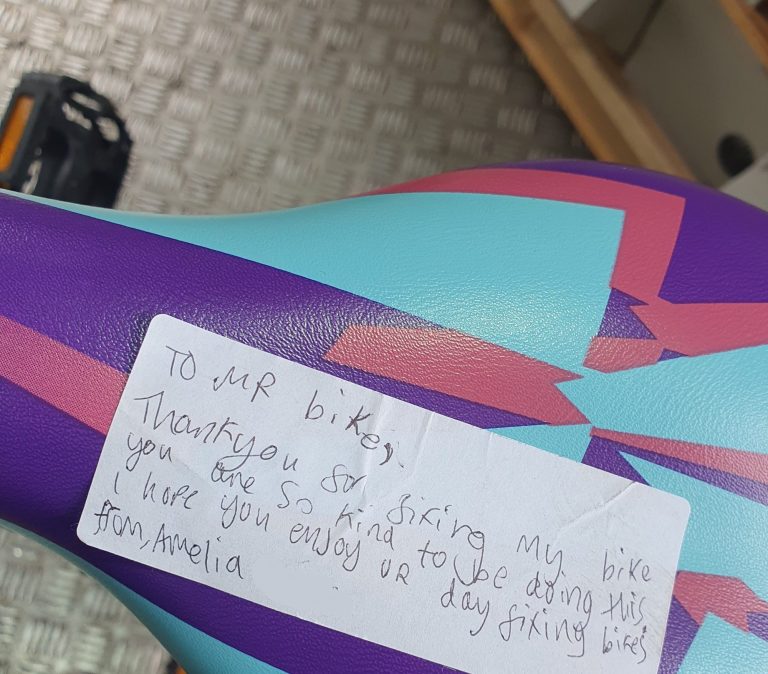 TO MR bike,
Thankyou for fixing my bike
you are so kind to be doing this
I hope you enjoy UR day fixing bikes
from, Amelia